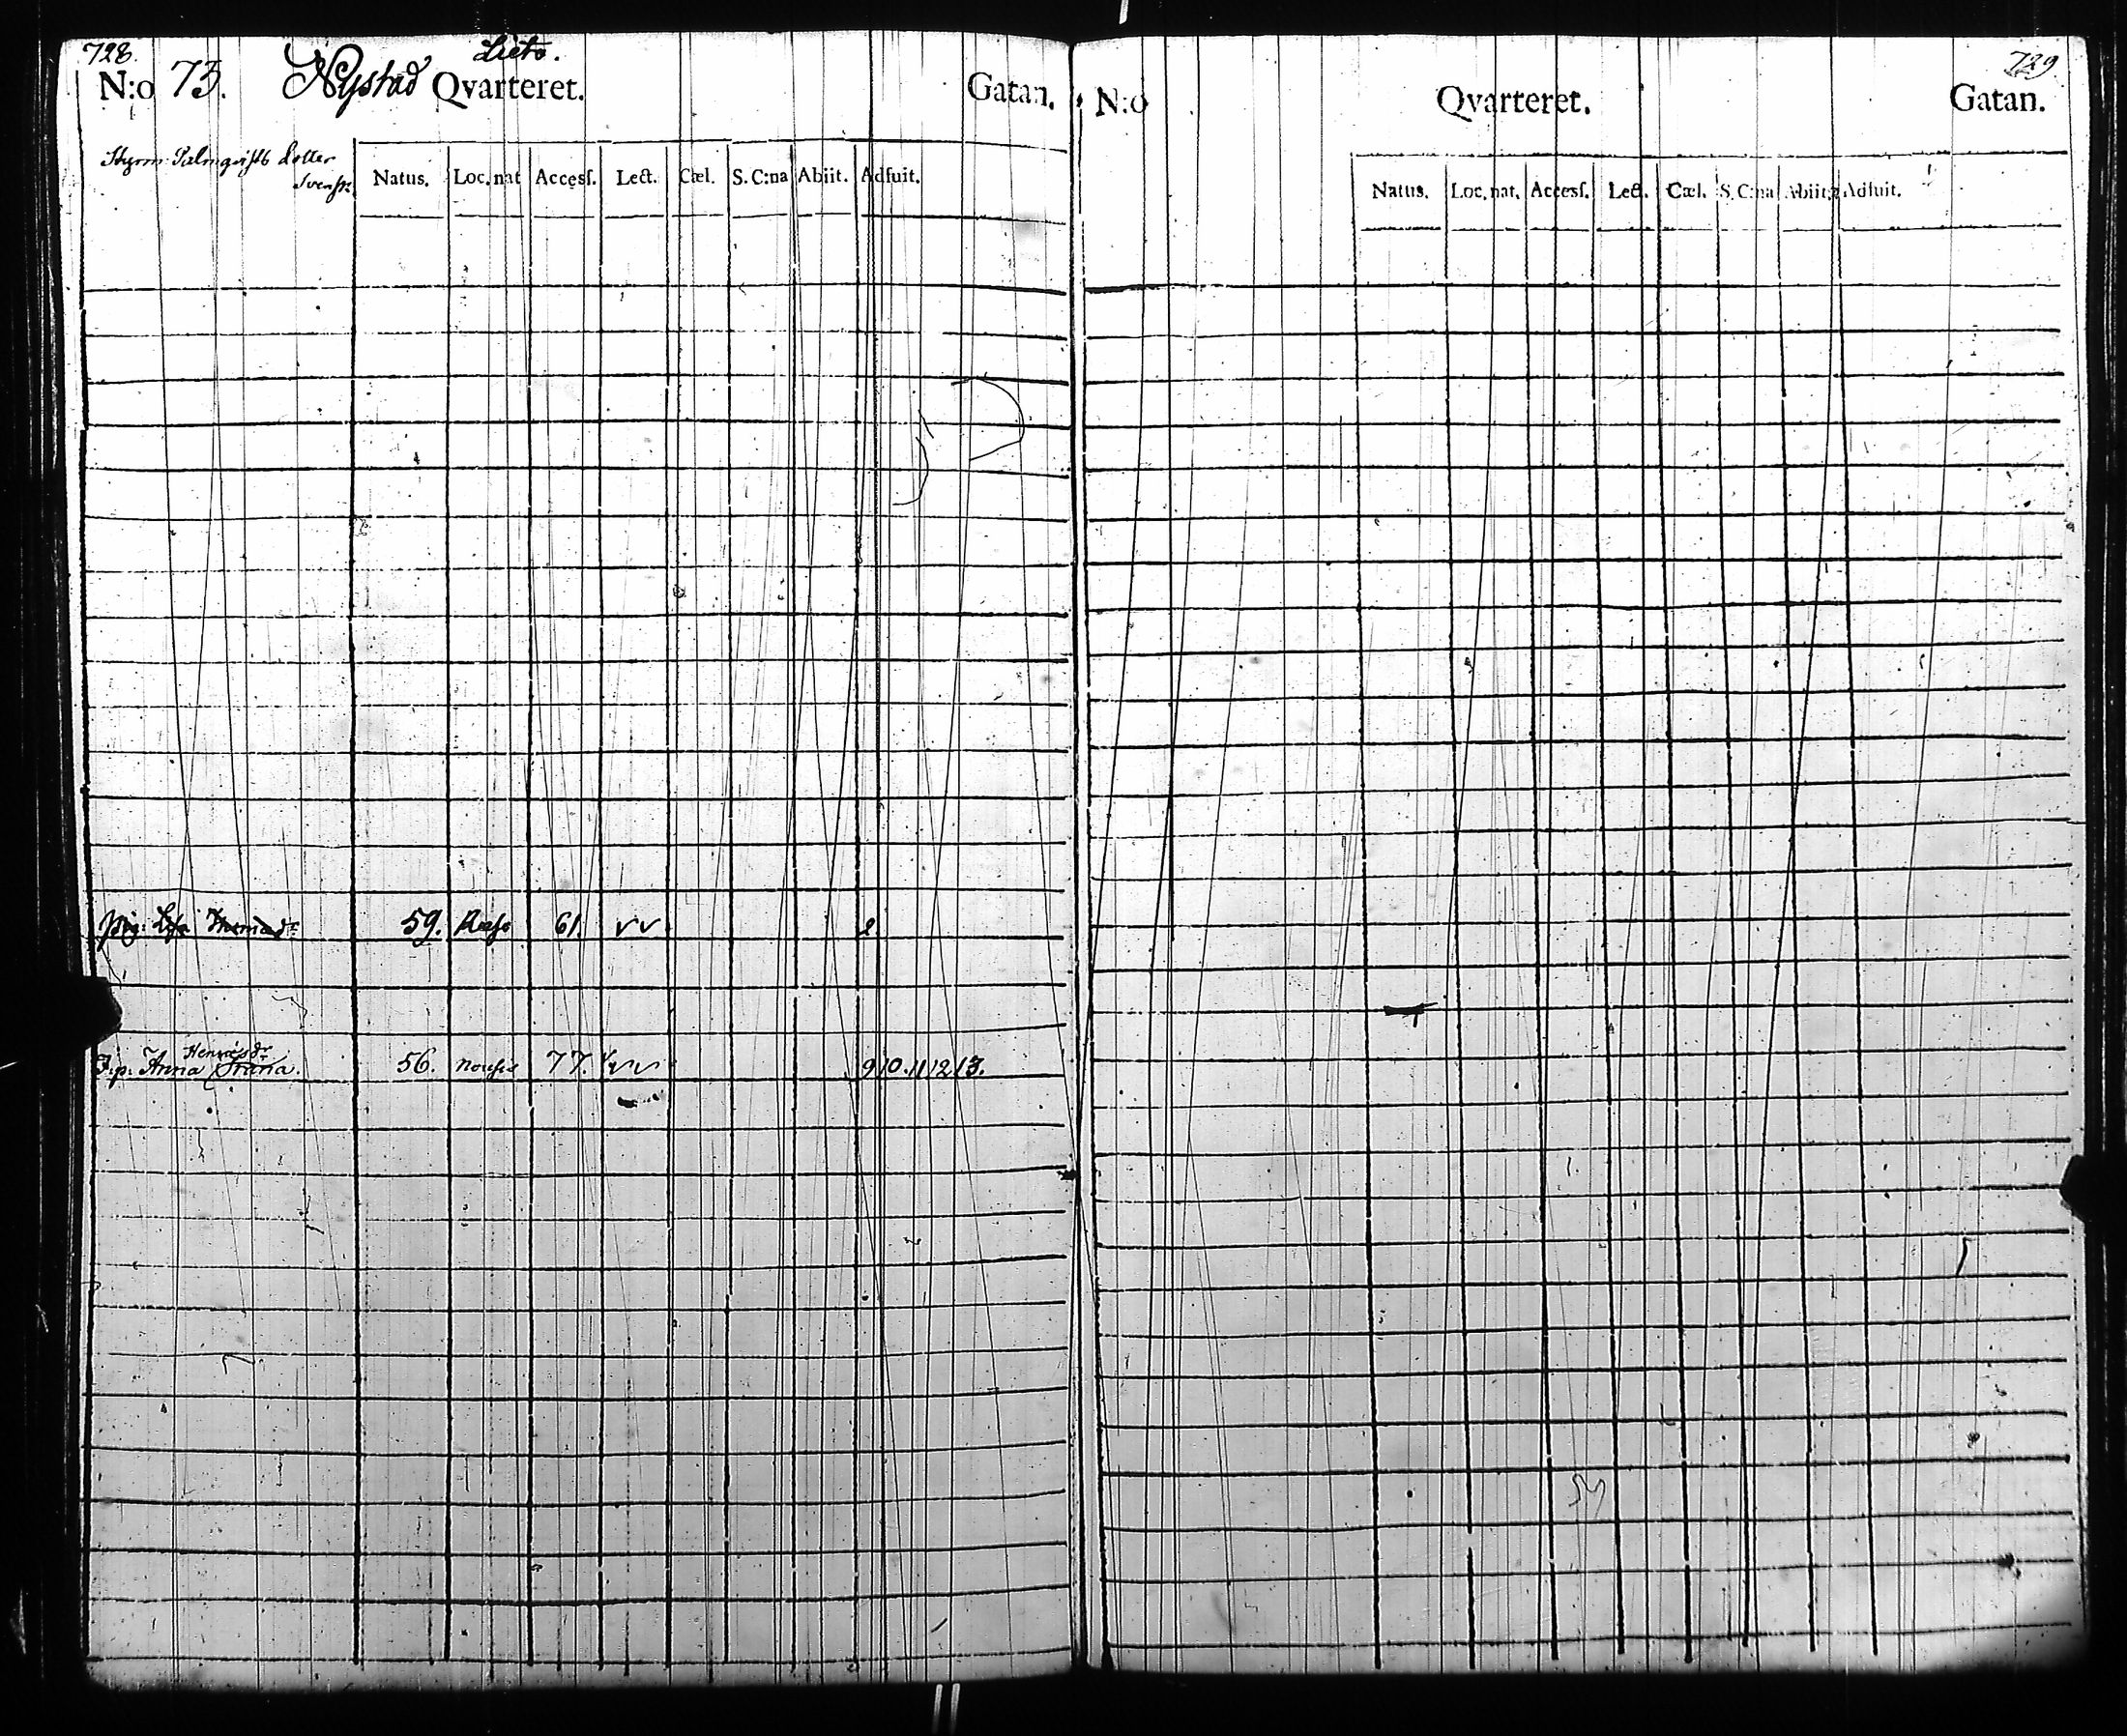 728.
Lieto.
N:o 73. Nystad Qvarteret. Gatan.
Styrm: Palmqvists Letter
Natus. Loc. nat Accesſ. Lect. Cœl. S. C:na Abiit. Adfuit.
Pig: Lisa Thomasdr 59. 61. v v 2
Henricsdr
J.p. Anna 56. Nousis 77. 9 10. 11 12 13.
729
N:o Qvarteret. Gatan.
Natus. Loc. nat. Accesſ. Lect. Cœl. S. C:na Abiit. Adfuit.